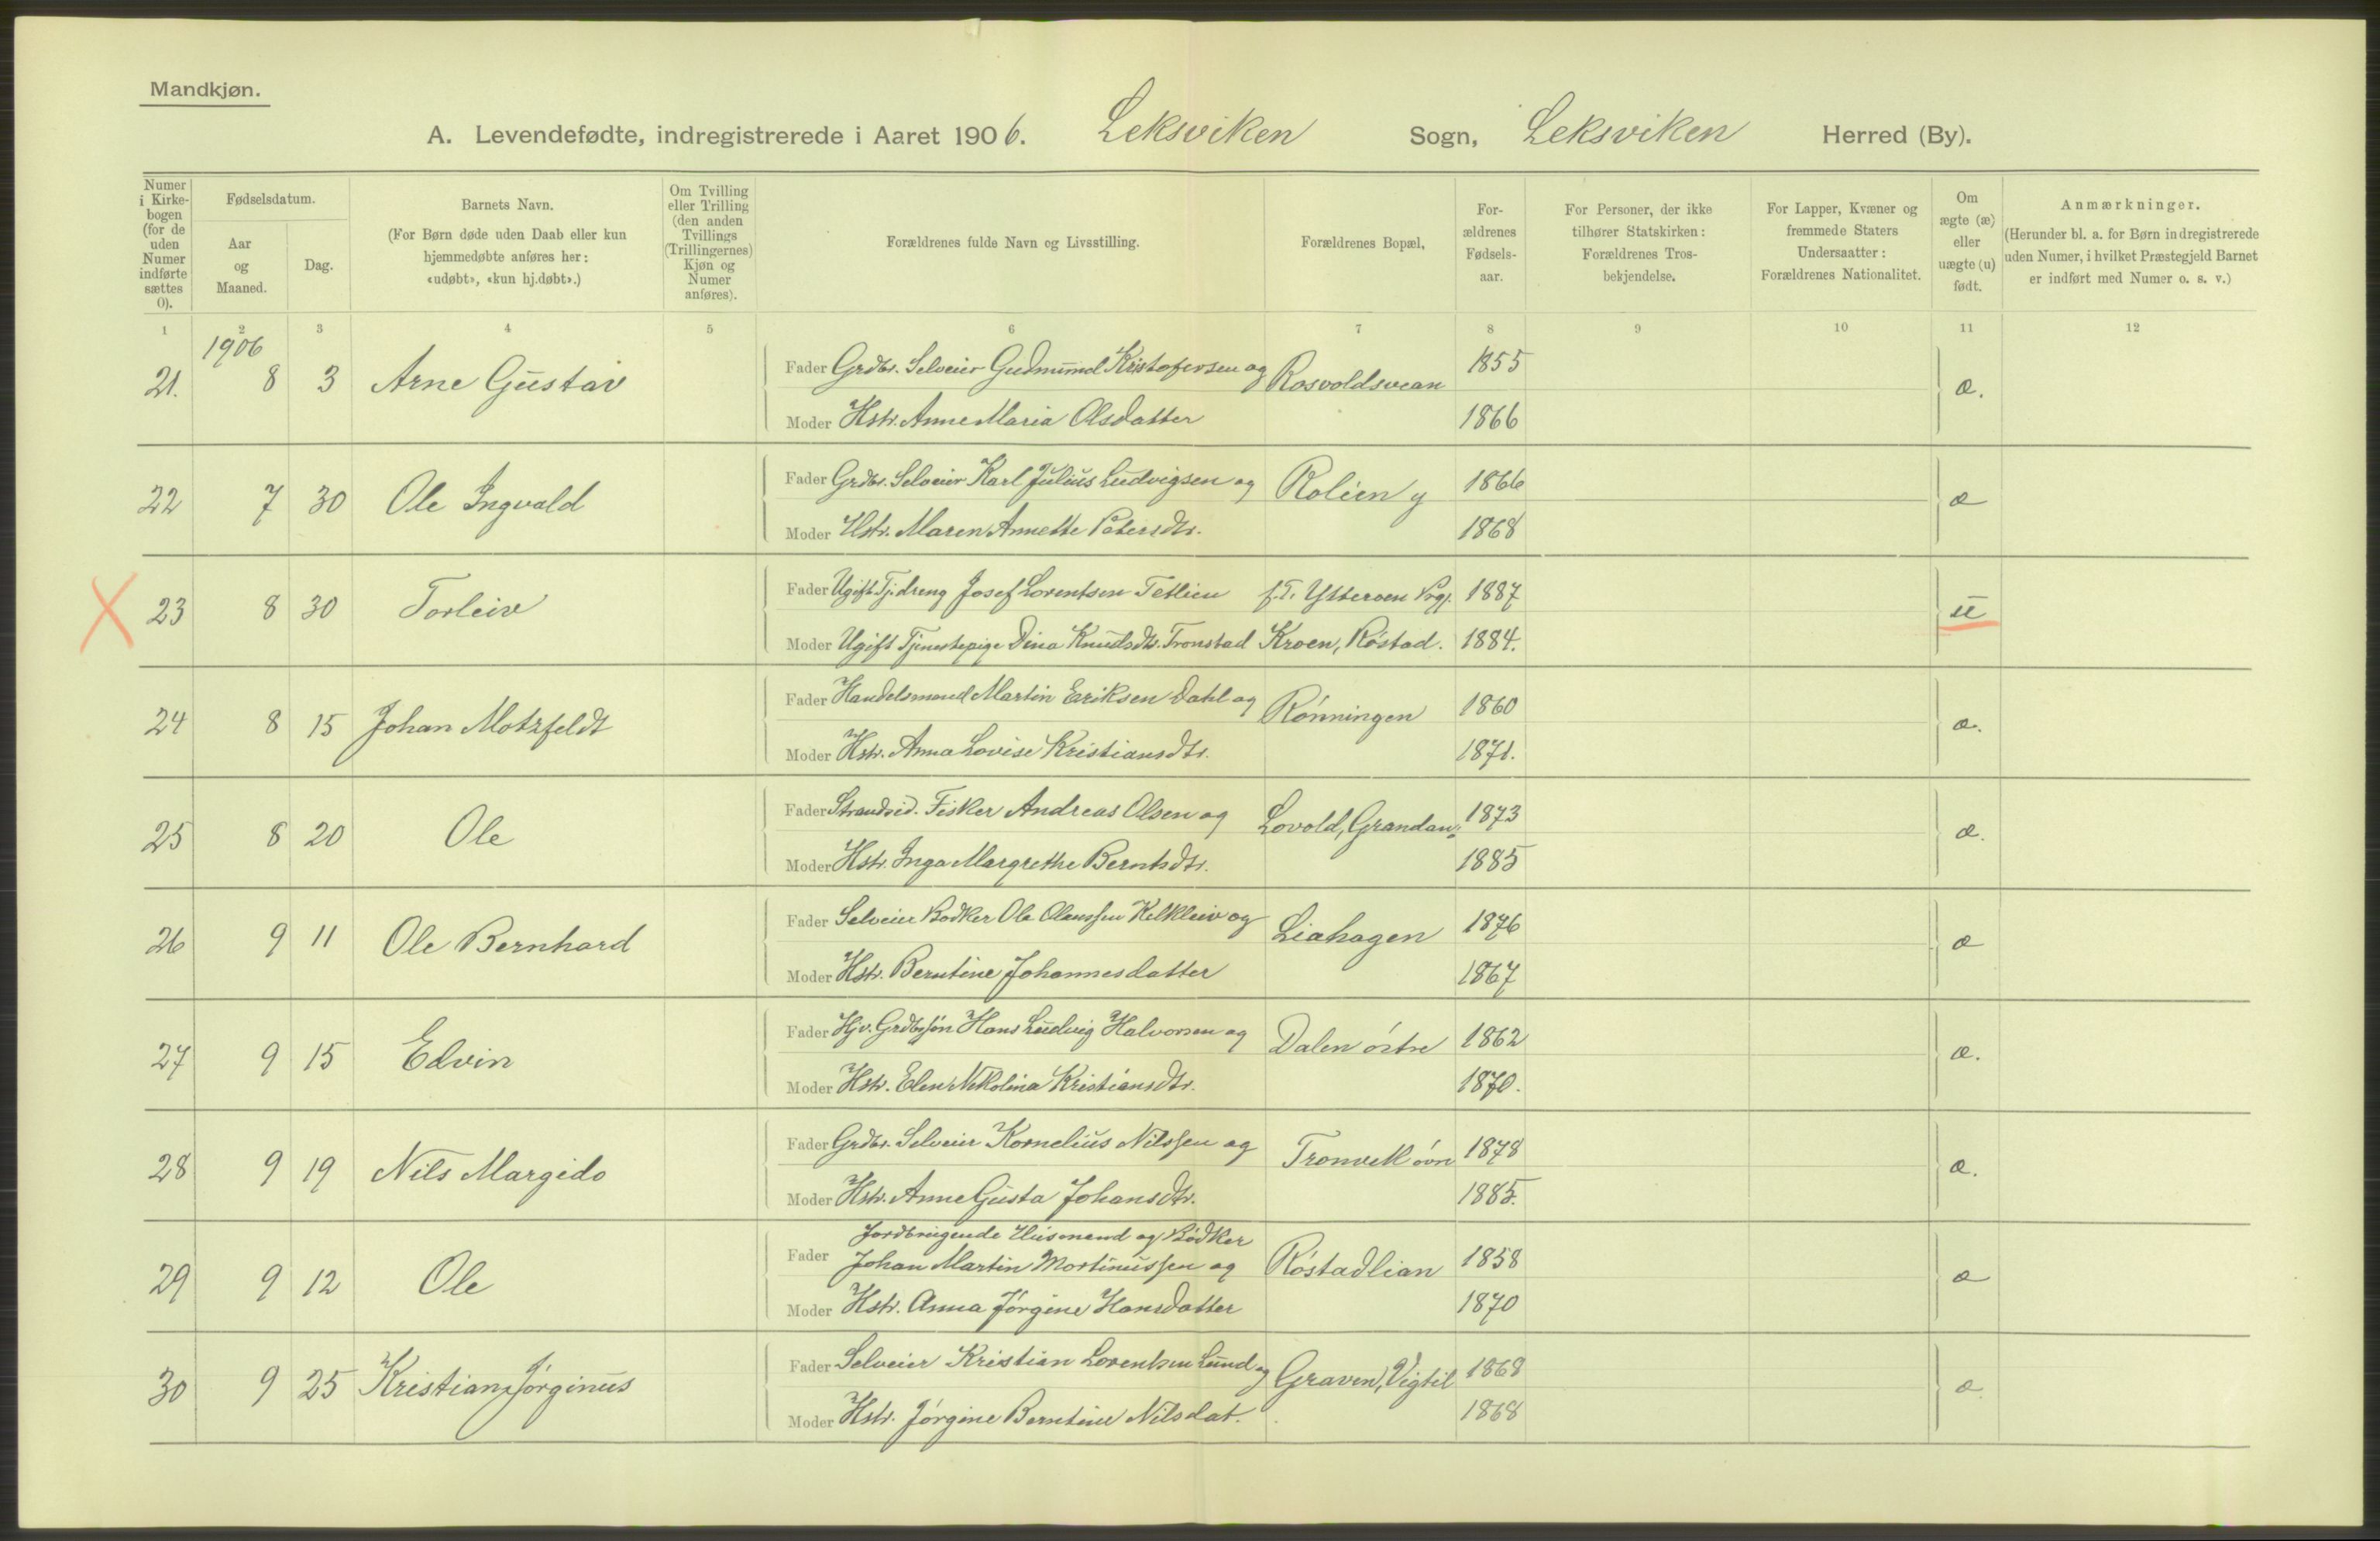 Mandkjøn.
A. Levendefødte, indregistrerede i Aaret 1906. Leksviken Sogn, Leksviken Herred (By).
Numer i Kirkebogen (for de uden Numer indførte sættes 0).
Fødselsdatum.
Aar og Maaned.
Dag.
Barnets Navn.
(For Børn døde uden Daab eller kun hjemmedøbte anføres her: «udøbt», «kun hj.døbt».)
Om Tvilling eller Trilling (den anden Tvillings (Trillingernes) Kjøn og Numer anføres).
Forældrenes fulde Navn og Livsstilling.
Forældrenes Bopæl,
For-ældrenes Fødsels-aar.
For Personer, der ikke tilhører Statskirken: Forældrenes Tros-bekjendelse.
For Lapper, Kvæner og fremmede Staters Undersaatter: Forældrenes Nationalitet.
Om ægte (æ) eller uægte (u) født.
Anmærkninger.
(Herunder bl. a. for Børn indregistrerede uden Numer, i hvilket Præstegjeld Barnet er indført med Numer o. s. v.)
1 2 3 4 5 6 7 8 9 10 11 12
1906
21. 8 3 Arne Gustav Fader Grdbr. Selveier Gudmund Kristofersen og Rosvoldsvean 1855 æ.
Moder Hstr. Anne Maria Olsdatter 1866
22 7 30 Ole Ingvald Fader Grdbr. Selveier Karl Julius Ludvigsen og Rolien y 1866 æ
Moder Hstr. Maren Annette Petersdtr. 1868
X 23 8 30 Torleiv Fader Ugift Tj.dreng Josef Lorentsen Tetlien f. T. Ytterøen Prgj. 1887 u
Moder Ugift Tjenestepige Dina Knudsdtr. Tronstad Kroen, Røstad. 1884.
24 8 15 Johan Motzfeldt Fader Handelsmand Martin Eriksen Dahl og Rønningen 1860 æ.
Moder Hstr. Anna Lovise Kristiansdtr. 1871.
25 8 20 Ole Fader Strandsid. Fisker Andreas Olsen og Lovold, Grandan 1873 æ.
Moder Hstr. Inga Margrethe Berntsdtr. 1885
26 9 11 Ole Bernhard Fader Selveier Bødker Ole Olaussen og Liahagen 1876 æ
Moder Hstr. Berntine Johannesdatter 1867
27 9 15 Edvin Fader Hjv. Grdbrsøn Hans Ludvig Halvorsen og Dalen østre 1862 æ.
Moder Hstr. Elen Nikolina Kristiansdtr. 1870.
28 9 19 Nils Margido Fader Grdbr. Selveier Kornelius Nilssen og Tronvik øvre 1878 æ.
Moder Hstr. Anne Gusta Johansdtr. 1885.
Jordbrugende Husmand og Bødker
29 9 12 Ole Fader Johan Martin Mortinussen og Røstadlian 1858 æ
Moder Hstr. Anna Jørgine Hansdatter 1870
30 9 25 Kristian Jørginus Fader Selveier Kristian Lorentsen Lund og Graven, Vigtil 1868 æ.
Moder Hstr. Jørgine Berntine Nilsdat. 1868